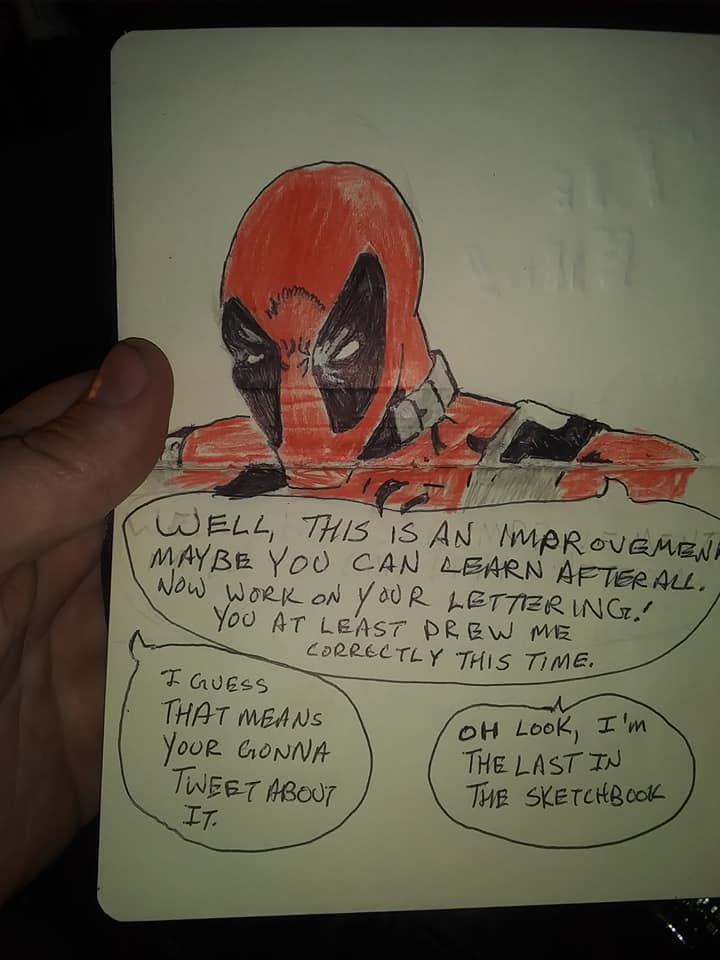 WELL, THIS IS AN IMPROVEMEN
MAYBE YOU CAN LEARN AFTER ALL.
NOW WORK ON YOUR LETTERING!
YOU AT LEAST DREW ME
CORRECTLY THIS TIME.
I GUESS
THAT MEANS
YOUR GONNA
TWEET ABOUT
IT.
OH LOOK, I'M
THE LAST IN
THE SKETCHBOOK